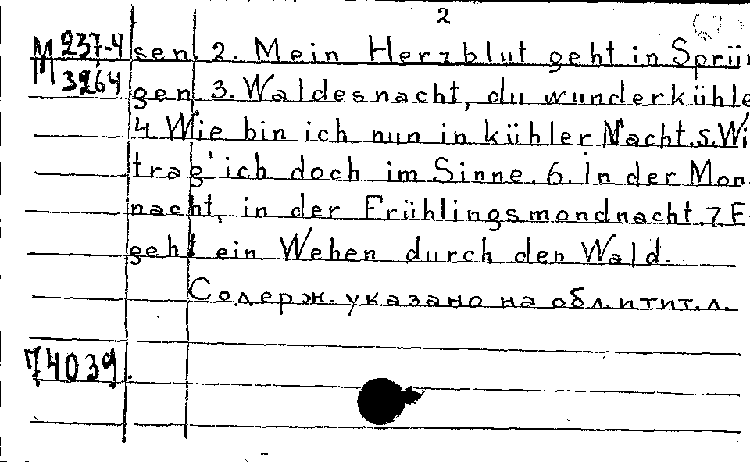 2
М 237-4 sen 2. Mein Herzblut geht in Sprün
3264 gen 3. Waldesnacht, du wunderkühle
4. Wie bin ich nun in kühler Nacht. 5. Wi
trag' ich doch im Sinne. 6. In der Mon
nacht, in der Frühlingsmondnacht 7. E
geht ein Wehen durch den Wald.
Содерж. указано на обл. и тит. л.
74039.